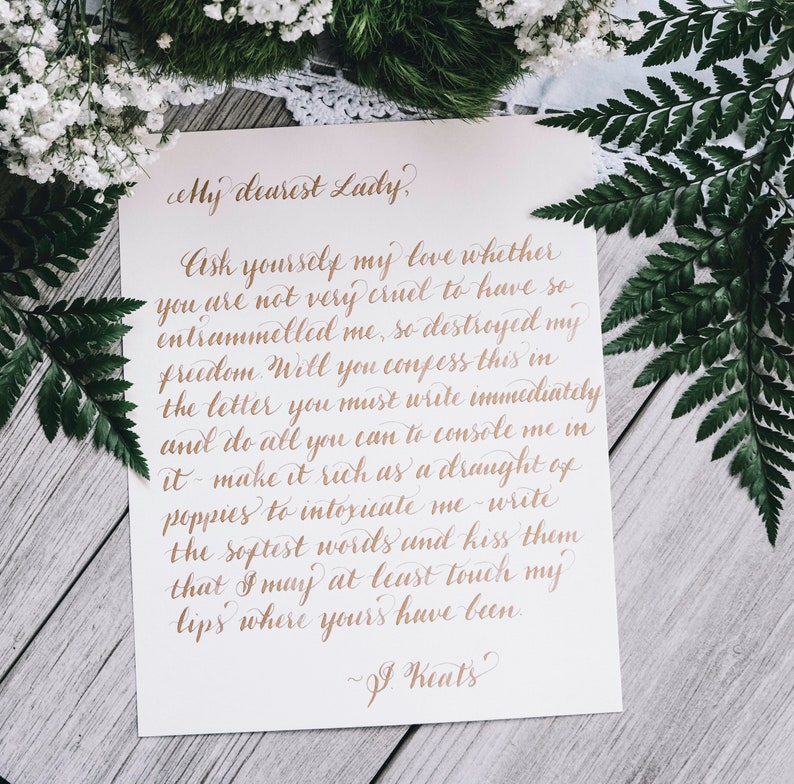 My dearest Lady,
Ask yourself my love whether
you are not very cruel to have so
entrammelled me, so destroyed my
freedom. Will you confess this in
the letter you must write immediately
and do all you can to console me in
it ~ make it rich as a draught of
poppies to intoxicate me ~ write
the softest words and kiss them
that I may at least touch my
lips where yours have been.
~ J. Keats